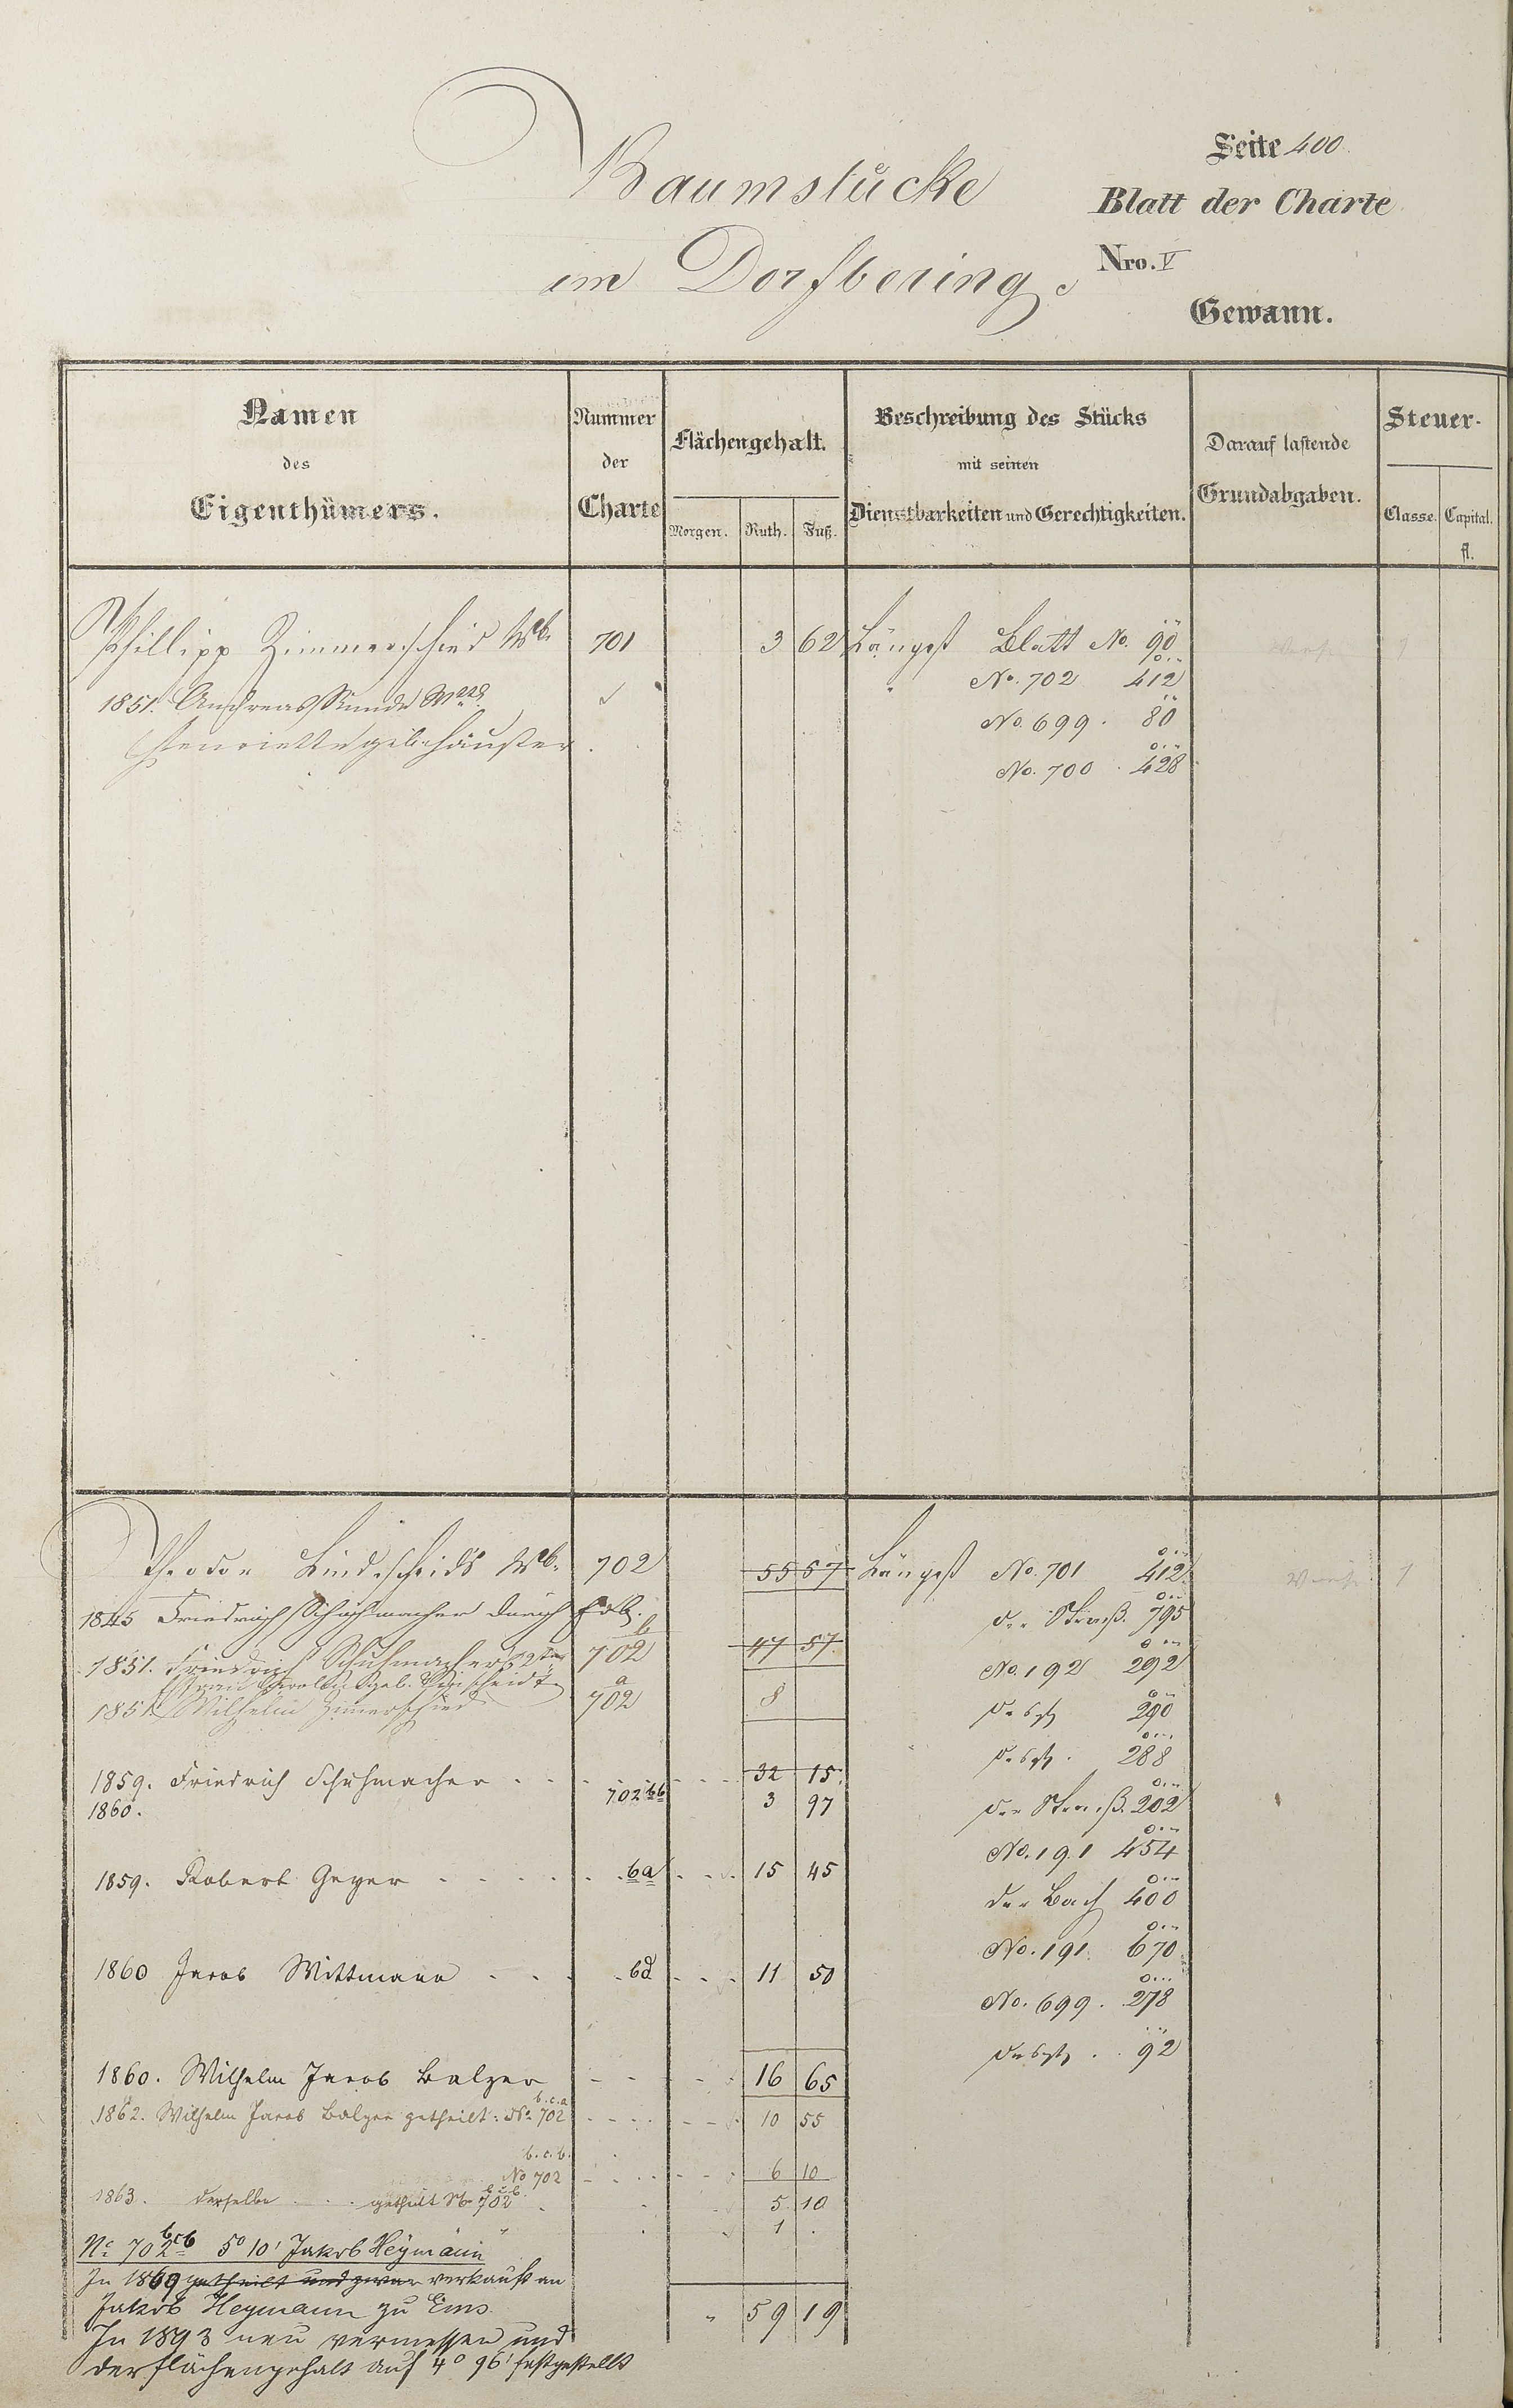 Baumstücke
im Dorfbering.
Seite 400.
Blatt der Charte
Nro. V
Gewann.
Namen
des
Eigenthümers.
Nummer
der
Charte
Flächengehalt.
Morgen. Ruth. Fuß.
Beschreibung des Stücks
mit seinen
Dienstbarkeiten und Gerechtigkeiten.
Darauf lastende
Grundabgaben.
Steuer-
Classe. Capital.
fl.
Phillipp Zimmerschied Wb. 701 3 62 Längst Blatt No. 90
1851. Andreas No. 702 412
Henriette geb. Häuster. No. 699. 80
No. 700. 428
Theodor Lindscheids Wb. 702 55 57 Längst No. 701 412
1845 Friedrich Schuhmacher durch der Straß. 795
1851. Friedrich Schuhmacher 2ter 702 b 47 57 No. 192 292
geb. Linscheidt ds 290
1851 Wilhelm Zimerschied 702 a 8
288
1859. Friedrich Schuhmacher 32 15
1860. 702 bb 3 97 der Straß. 202
No. 191 454
1859. Robert Geyer ba 15 45
der Bach 400
No. 191. 670
1860 Jacob Wittmann bd 11 50
No. 699. 278
92
1860. Wilhelm Jacob Balzer 16 65
1862. Wilhelm Jacob Balzer getheilt: No. 702 b.c.a 10 55
b.c.b.
No 702 6 10
1863. derselbe getheilt No 702 b c b 5 10
1
No 702 bcb 5° 10' Jakob Heymann
In 1869 getheilt und zwar verkauft an
Jakob Heymann zu Ems.
59 19
In 1893 neu vermessen und
der flächengehalt auf 4° 96' festgestellt